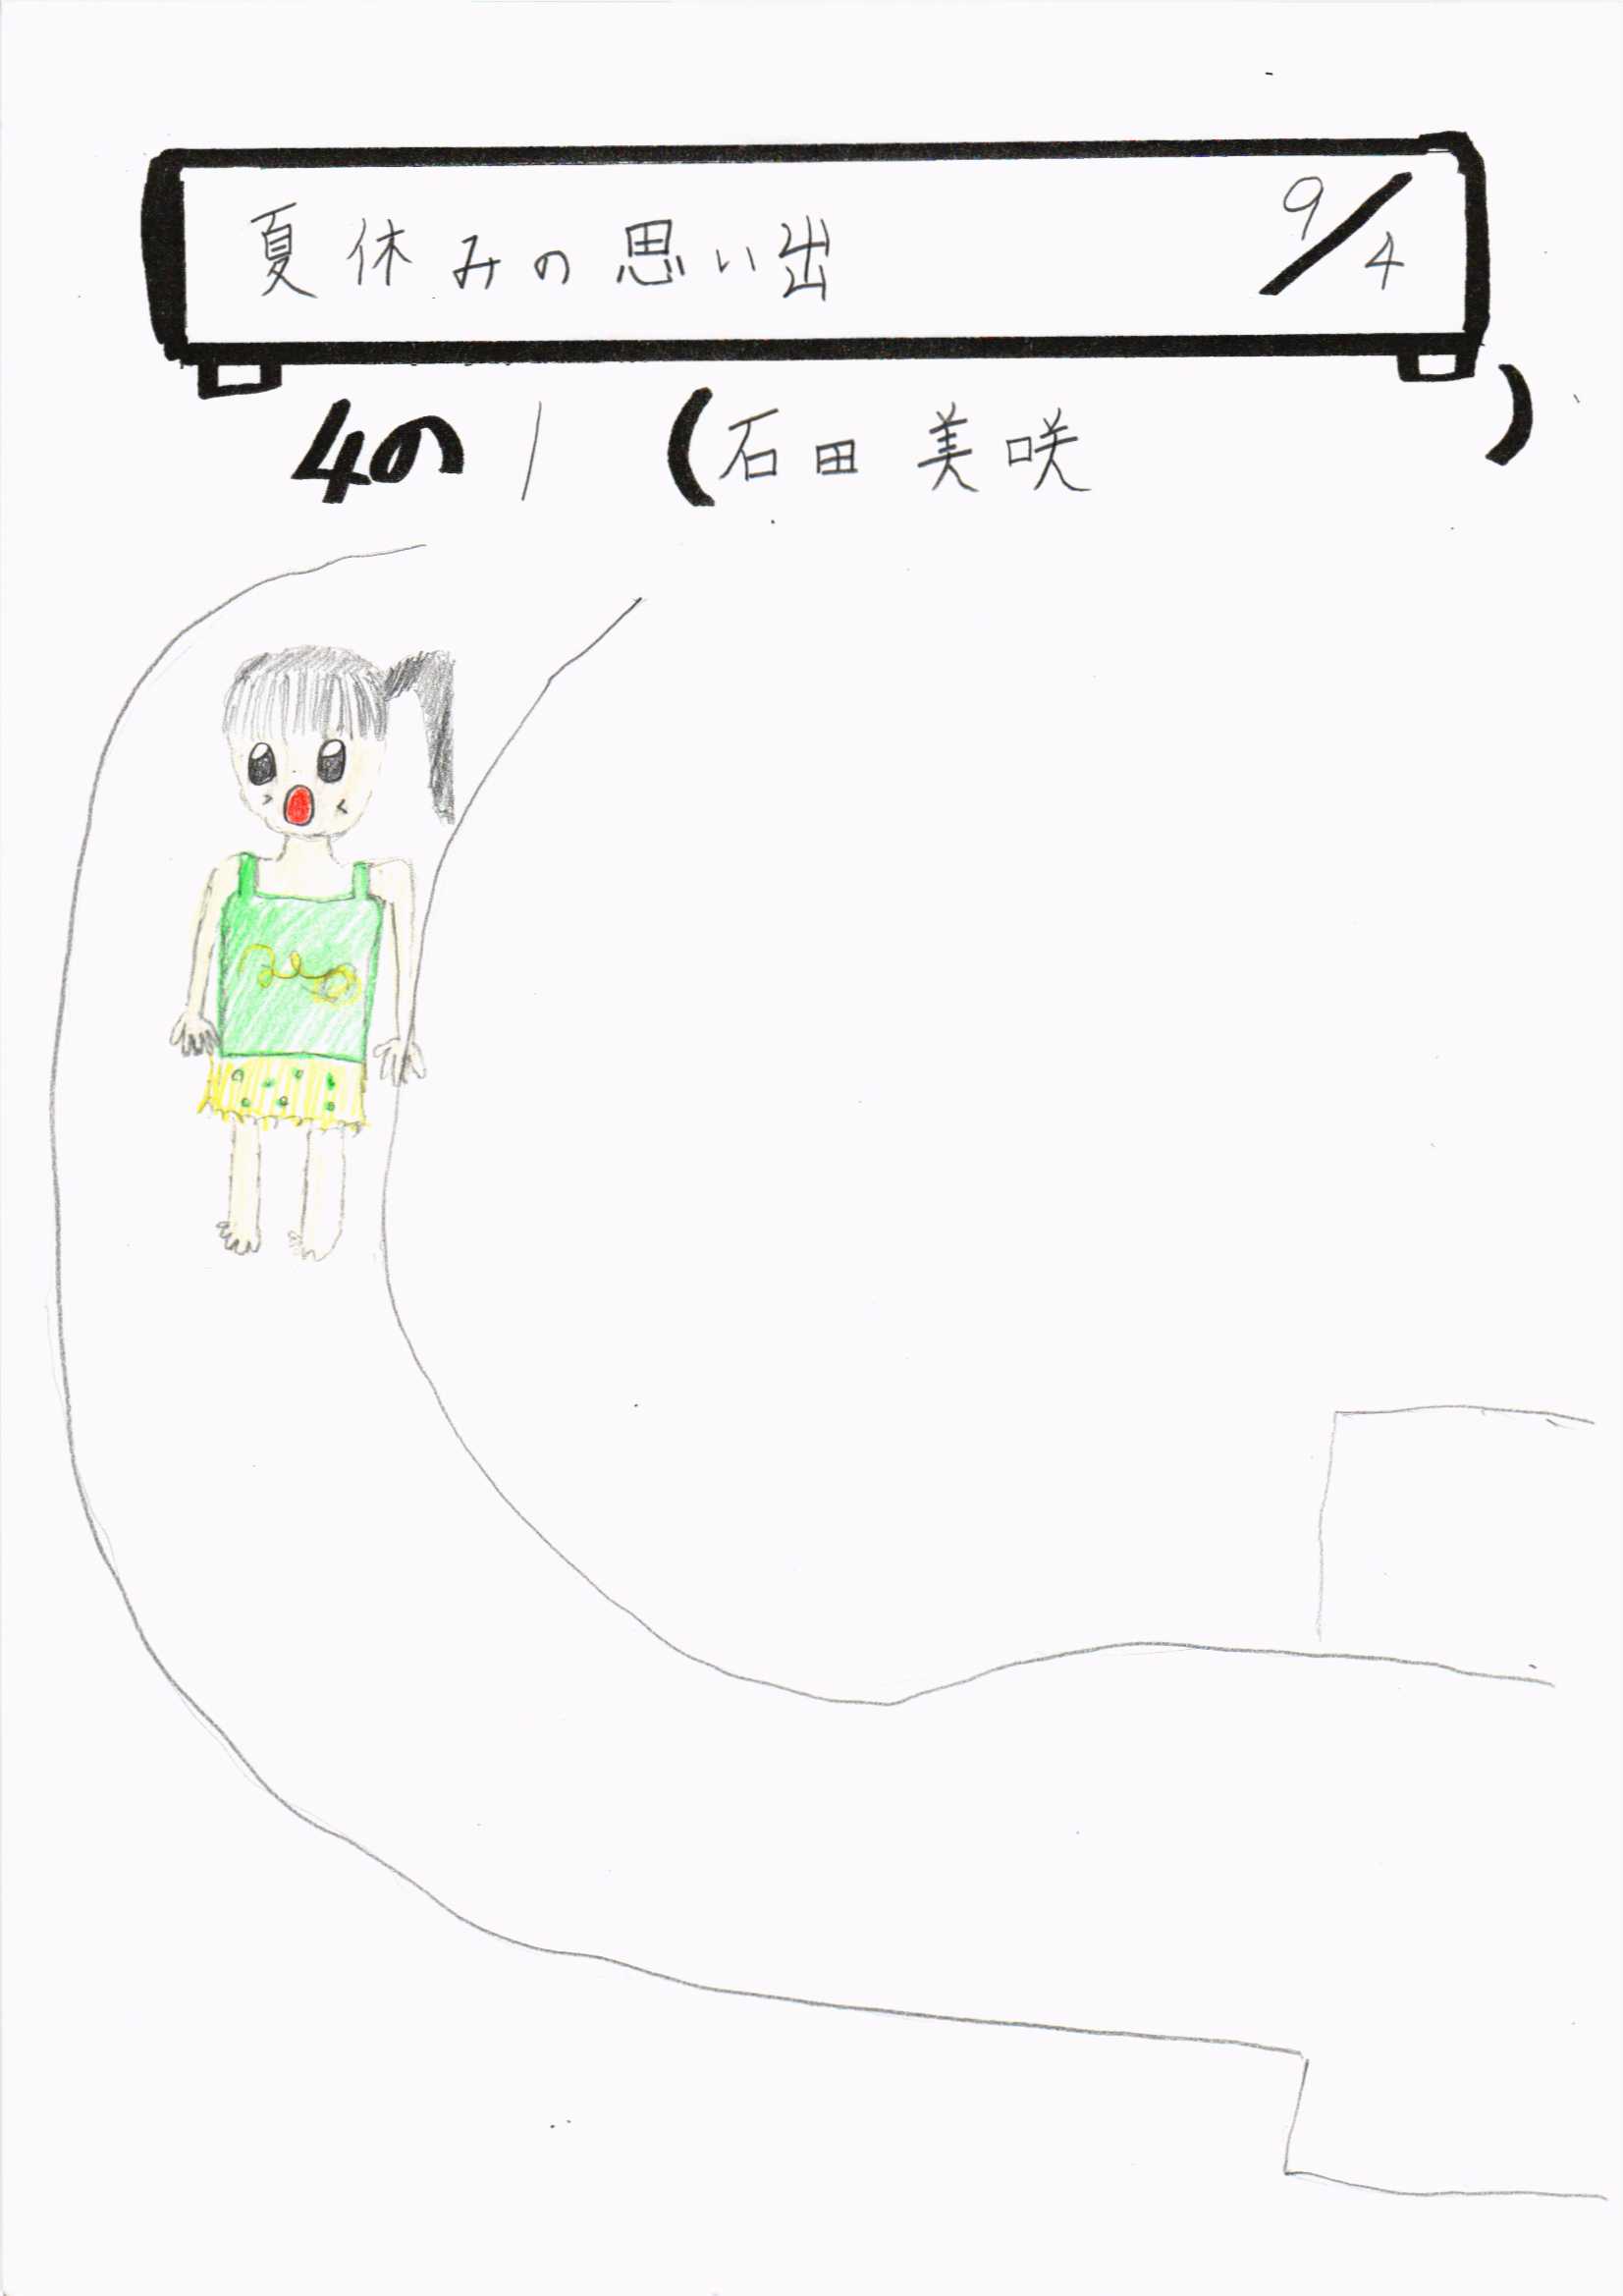 夏休みの思い出 9/4
4の1 (石田美咲)